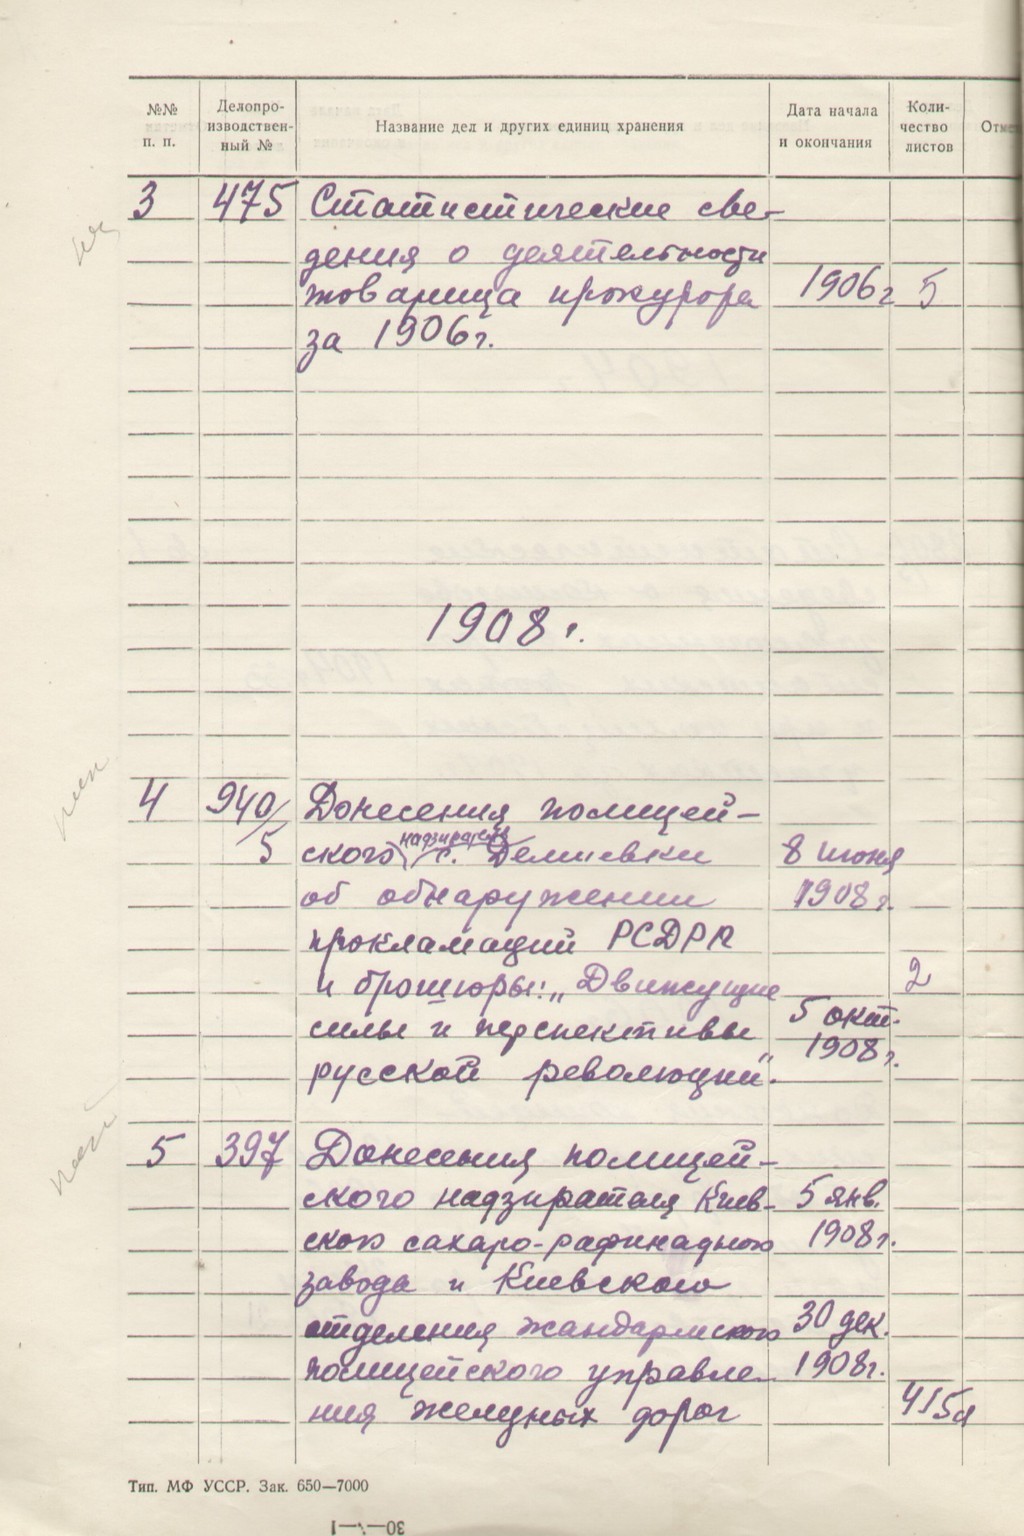 №№ п. п.
Делопро-изводствен-ный №
Название дел и других единиц хранения
Дата начала и окончания
Коли-чество листов
3 475 Статистические све-
дения о деятельности
товарища прокурора 1906 г 5
за 1906 г.
1908 г.
4 940/ Донесения полицей-
надзирателя
5 ского с. Демиевки 8 июня
об обнаружении 1908 г.
прокламаций РСДРП
и брошюры: „Движущие 2
силы и перспективы 5 окт.
русской революции". 1908 г.
5 397 Донесения полицей-
ского надзирателя Киев- 5 янв.
ского сахаро-рафинадного 1908 г.
завода и Киевского
отделения жандармского 30 дек.
полицейского управле- 1908 г.
ния железных дорог 415
Тип. МФ УССР. Зак. 650—7000